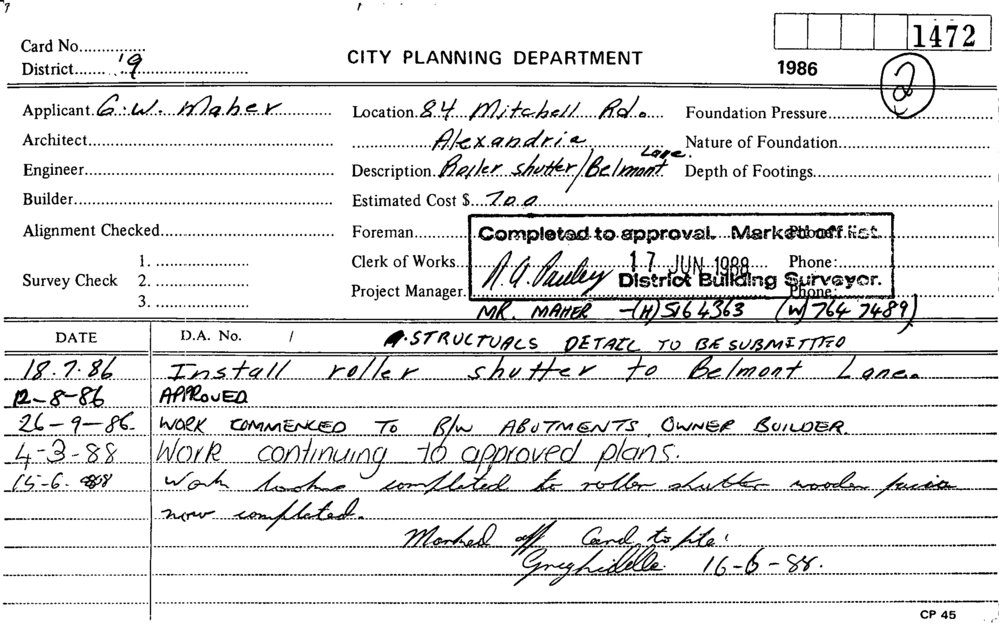 Card No...............
1472
District........19........................
CITY PLANNING DEPARTMENT
1986
2
Applicant G.W. Maher
Location 84 Mitchell Rd.
Foundation Pressure
Architect
Alexandria
Nature of Foundation
Engineer
Description Roller shutter/Belmont Lane.
Depth of Footings
Builder
Estimated Cost $ 700
Alignment Checked
Foreman
Completed to approval. Marked off list.
Phone:
Survey Check
1.
2.
3.
Clerk of Works
17 JUN 1988
Phone:
District Building Surveyor.
Project Manager
Phone:
MR. MAHER -(H) 516 4363 (W) 764 7489)
DATE
D.A. No. /
STRUCTUALS DETAIL TO BE SUBMITTED
18.7.86 Install roller shutter to Belmont Lane.
12-8-86 APPROVED
26-9-86. WORK COMMENCED TO B/W ABUTMENTS, OWNER BUILDER.
4-3-88 Work continuing to approved plans.
15-6-88 Work completed to roller shutter wooden
now completed.
Marked off Card to file.
16-6-88.
CP 45